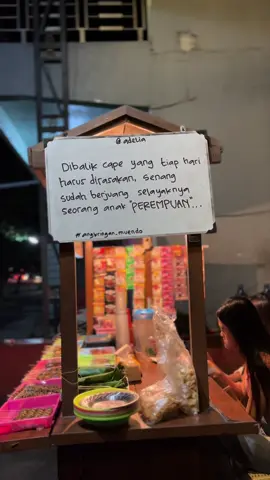 @adelia
Dibalik cape yang tiap hari
harus dirasakan, senang
sudah berjuang selayaknya
seorang anak "PEREMPUAN"...
#angkringan_muendo